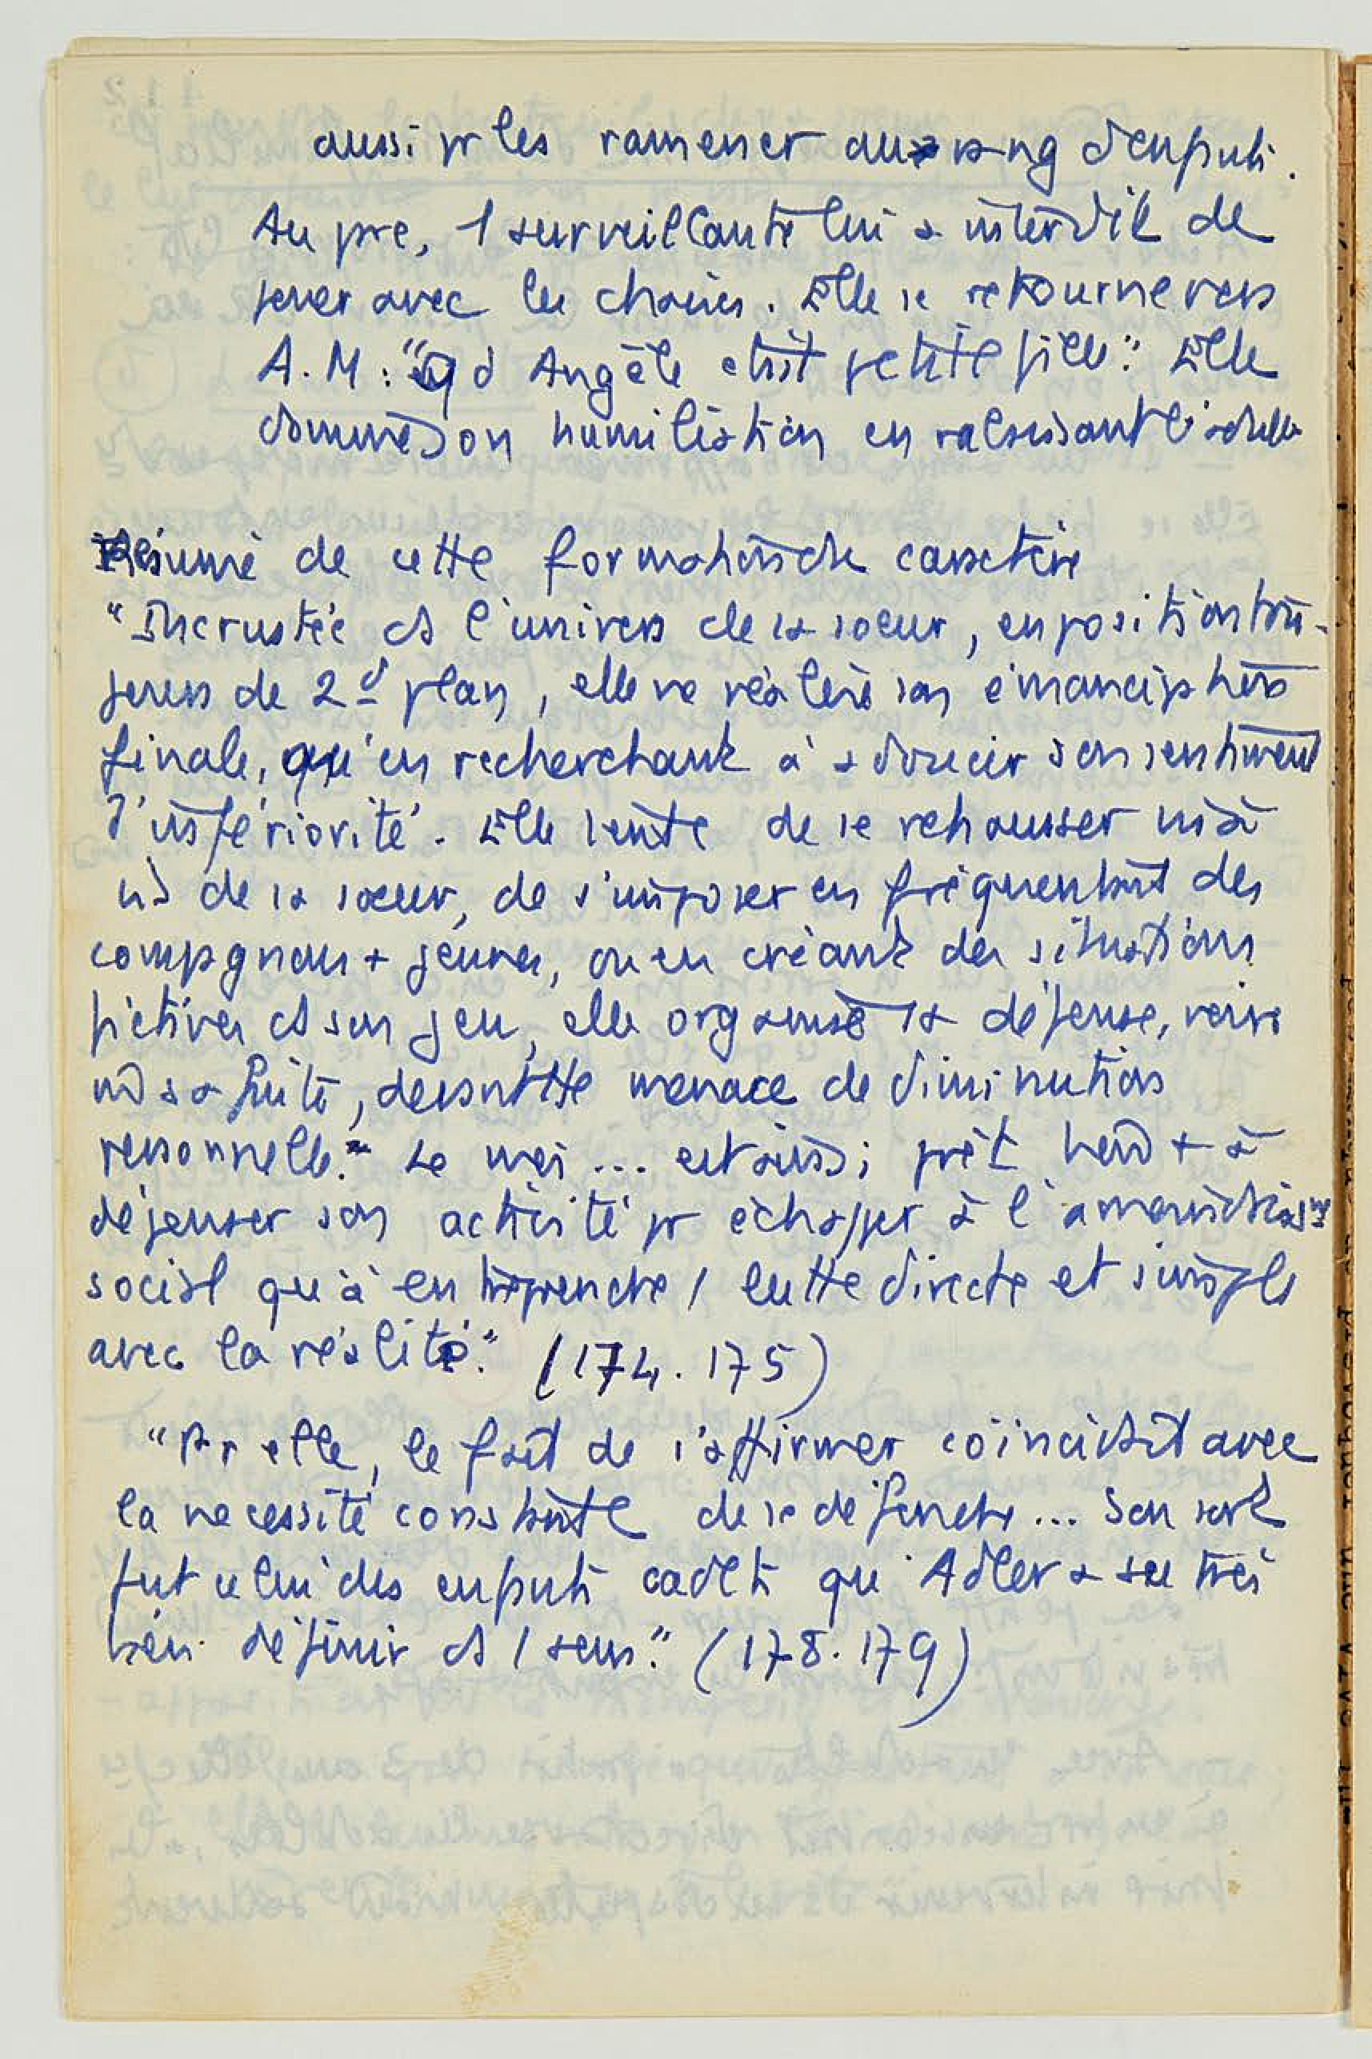 aussi pr les ramener au rang d'enfants.
Au parc, 1 surveillante lui a interdit de
jouer avec les chaises. Elle se retourne vers
A.M : "qd Angèle était petite fille". Elle
domine son humiliation en rabaissant l'adulte
Résumé de cette formation de caractère
"Incrustée ds l'univers de sa soeur, en position tou-
jours de 2d plan, elle ne réalise son émancipation
finale, qu'en recherchant à adoucir son sentiment
d'infériorité. Elle tente de se rehausser vis à
vis de sa soeur, de s'imposer en fréquentant des
compagnons + jeunes, ou en créant des situations
fictives ds son jeu, elle organise sa défense, voire
m̂ sa fuite, devant cette menace de diminution
personnelle." Le moi ... est aussi prêt à
dépenser son activité pr échapper à l'amoindrissmt
social qu'à entreprendre 1 lutte directe et simple
avec la réalité." (174.175)
"Pr elle, le fait de s'affirmer coïncidait avec
la nécessité constante de se défendre ... Son sort
fut celui des enfants cadets qu'Adler a su très
bien définir ds 1 sens." (178.179)